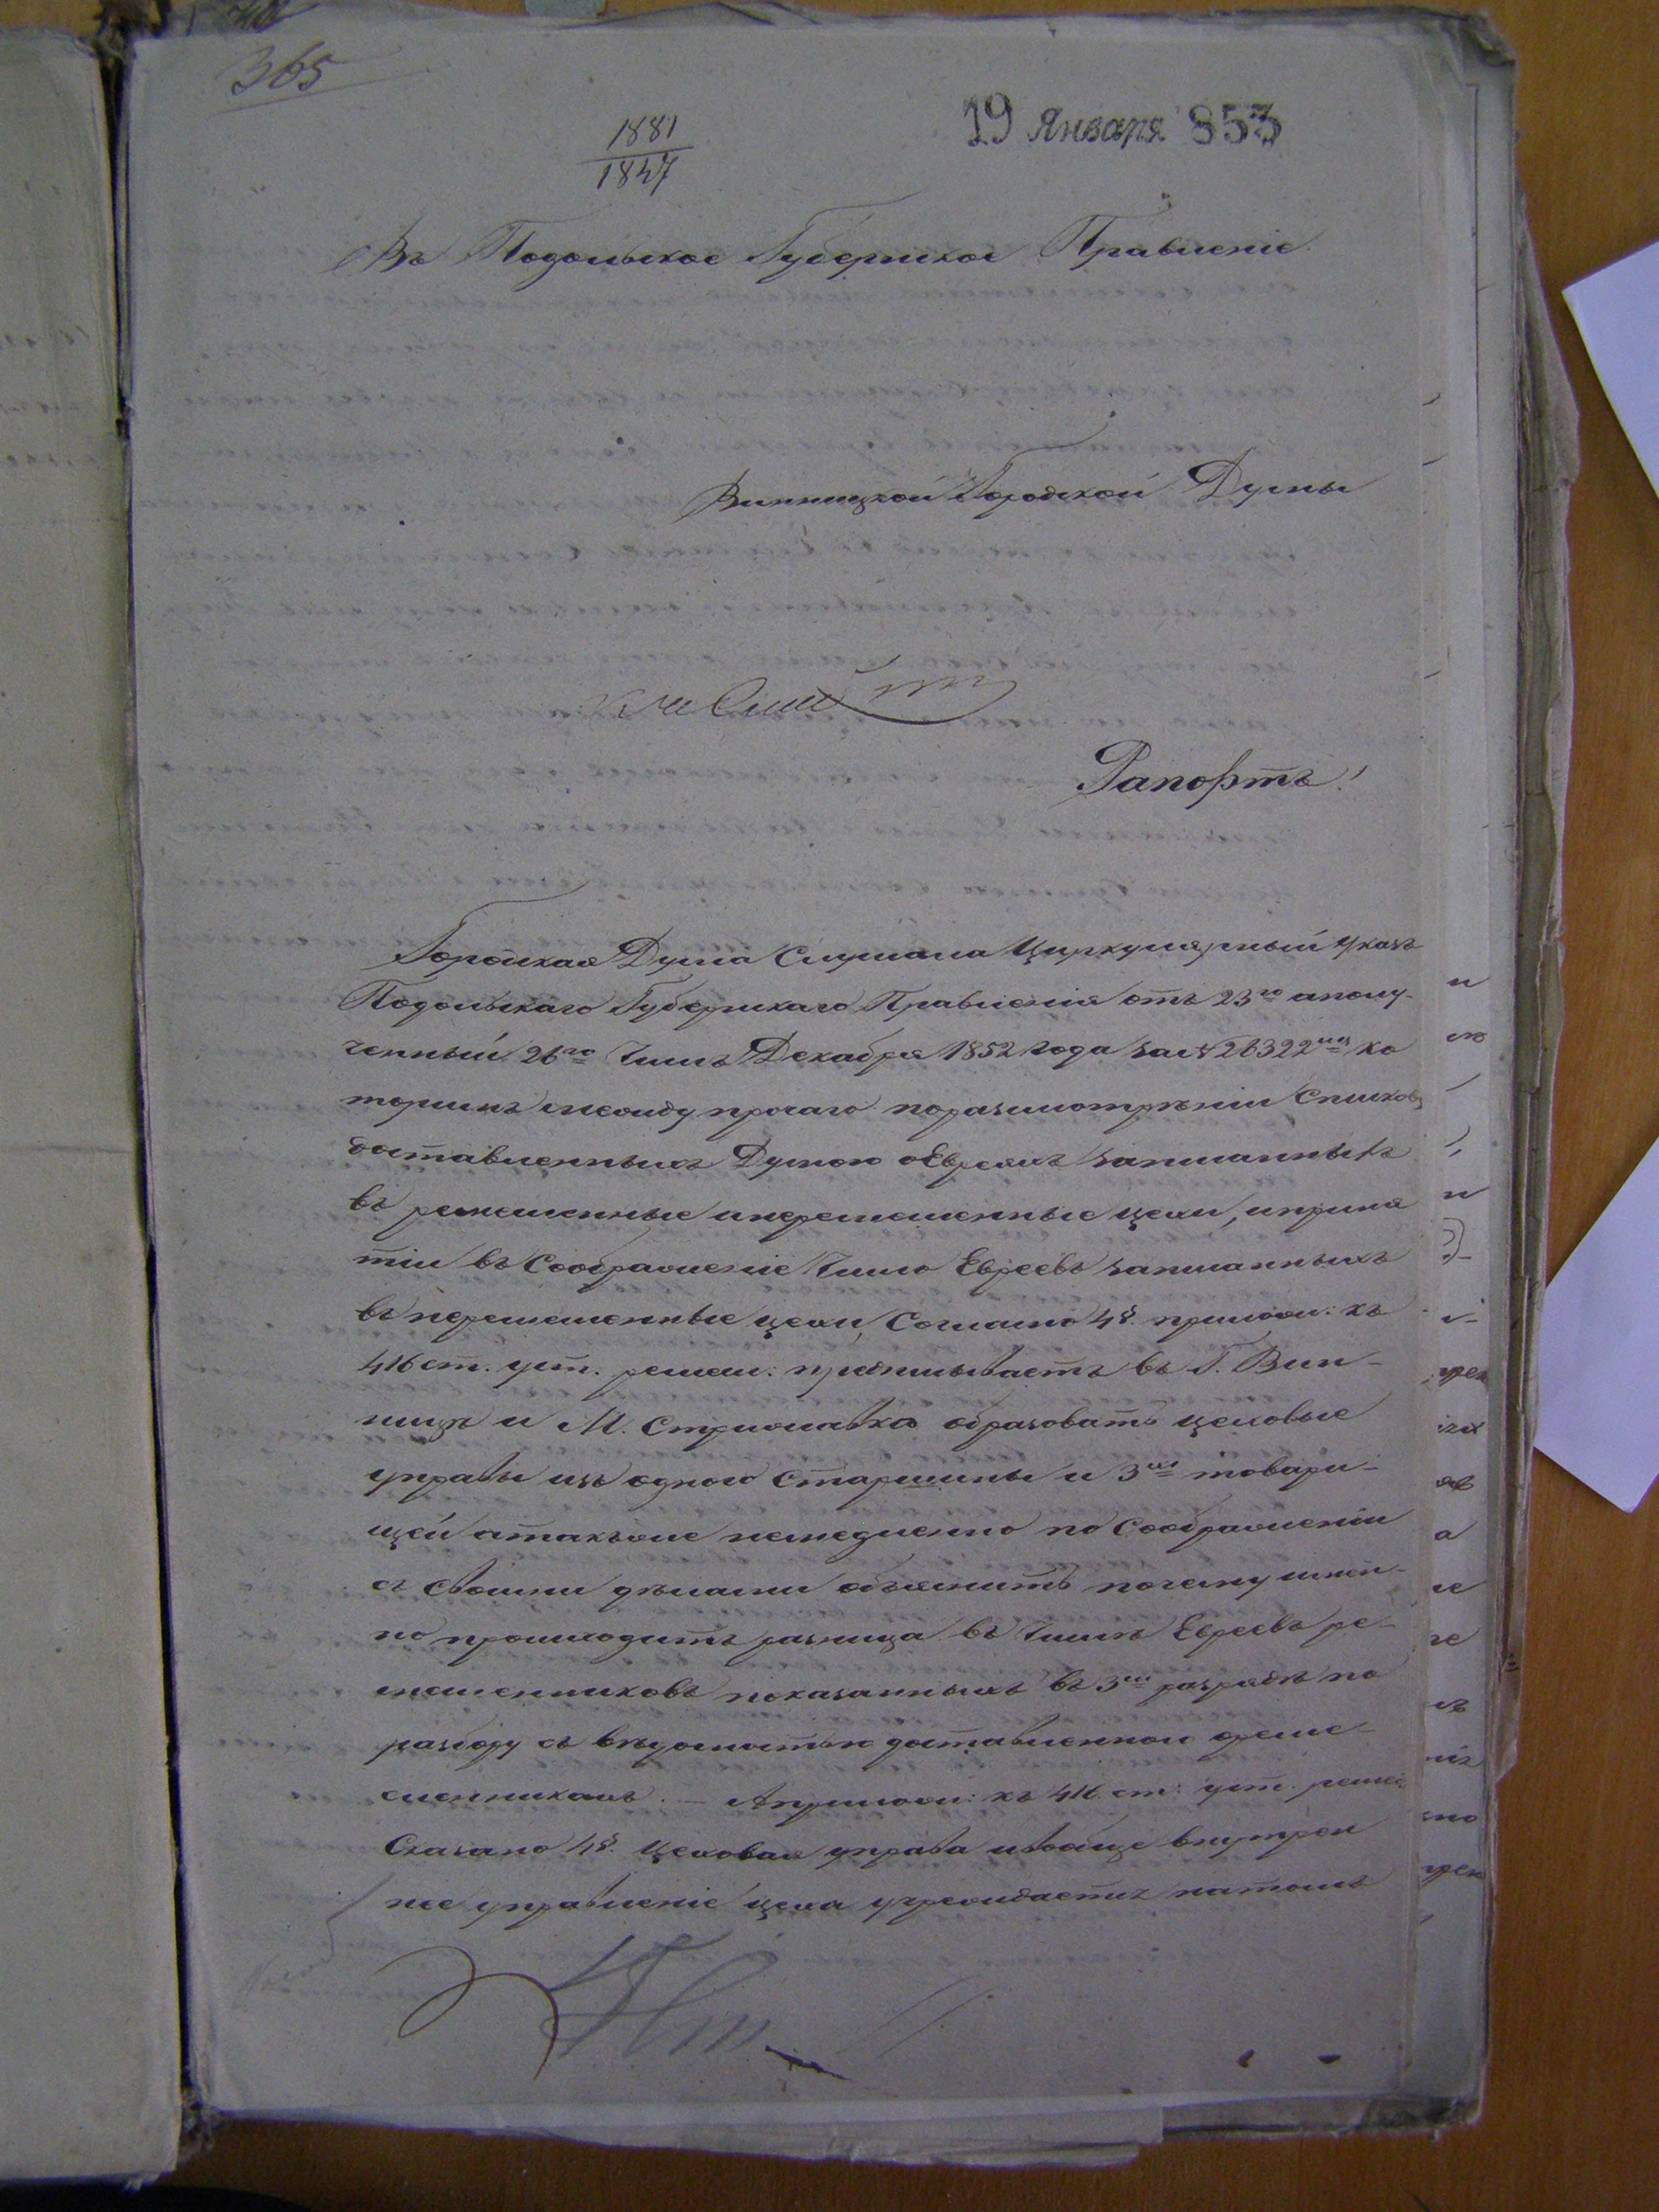 365
19 Января 853
1881
1847
Въ Подольское Губернское Правленіе.
Винницкой Городской Думы
Рапортъ!
Городская Дума Слушала Циркулярный Указъ
Подольскаго Губернскаго Правленія отъ 23го аполу-
ченный 26го Числъ Декабря 1852 года за № 26322мъ ко
торымъ между прочаго поразсмотрѣніи Списковъ
доставленныхъ Думою оЕвреяхъ записанныхъ
въ ремесленные инеремесленные цехи, иприня
тіи въ Соображеніе Число Евреевъ записанныхъ
въ неремесленные цехи, Согласно 4§. прилож: къ
416 ст. уст. ремесл: предписываетъ въ Г. Вин-
ницѣ и М. Стрижавка образовать цеховые
управы изъ одного Старшины и 3хъ товари-
щей атакъже немедленно по Соображеніи
съ своими дѣлами объяснить почему имен-
но происходитъ разница въ Числѣ Евреевъ ре-
месленниковъ показанныхъ въ 3мъ разрядѣ по
разбору съ вѣдомостью доставленною ореме-
сленникахъ. — Априлож: къ 416 ст: уст. ремес
Сказано 4§. Цеховая управа ивообще внутрен
нее управленіе цеха учреждается натомъ